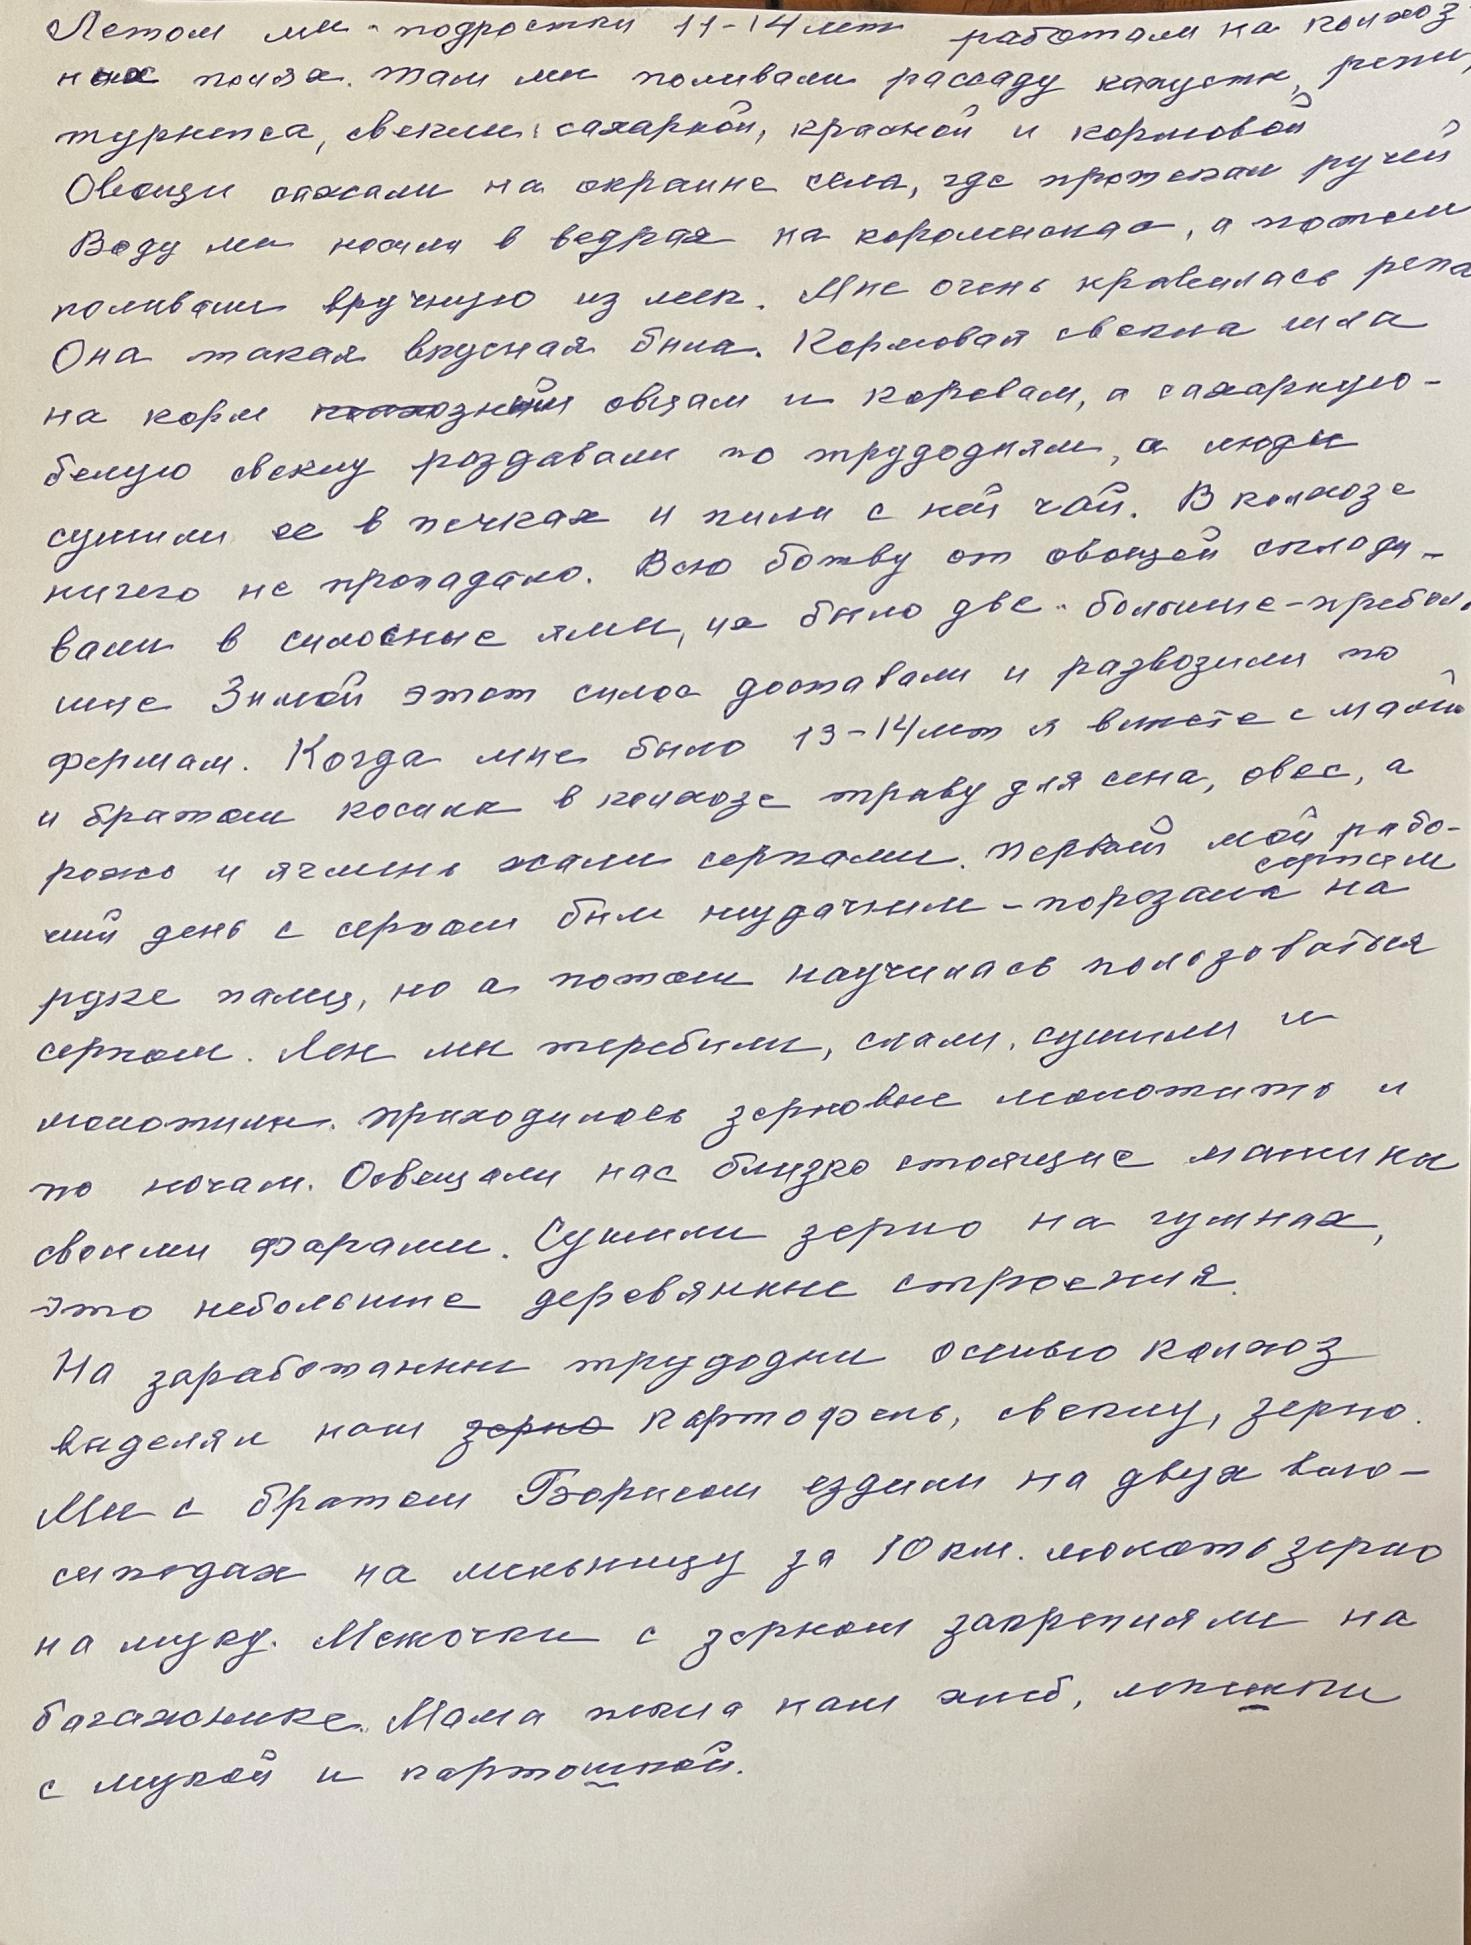 Летом мы - подростки 11-14 лет работали на колхоз-
ных полях. Там мы поливали рассаду капусты, репы,
турнепса, свеклы: сахарной, красной и кормовой
Овощи сажали на окраине села, где протекал ручей
Воду мы носили в ведрах на коромыслах, а потом
поливали вручную из леек. Мне очень нравилась репа
Она такая вкусная была. Кормовая свекла шла
на корм колхозным овцам и коровам, а сахарную-
белую свеклу раздавали по трудодням, а люди
сушили ее в печках и пили с ней чай. В колхозе
ничего не пропадало. Всю ботву от овощей склады-
вали в силосные ямы, их было две - большие-пребол.
шие Зимой этот силос доставали и развозили по
фермам. Когда мне было 13-14 лет я вместе с мамой
и братом косили в колхозе траву для сена, овес, а
рожь и ячмень жали серпами. Первый мой рабо-
серпом
чий день с серпом был неудачным - порезала на
руке палец, но а потом научилась пользоваться
серпом. Лен мы теребили, слали, сушили и
молотили. Приходилось зерновые молотить и
по ночам. Освещали нас близко стоящие машины
своими фарами. Сушили зерно на гумнах,
это небольшие деревянные строения.
На заработанные трудодни осенью колхоз
выделял нам зерно картофель, свеклу, зерно.
Мы с братом Борисом ездили на двух вело-
сипедах на мельницу за 10 км. молоть зерно
на муку. Мешочки с зерном закрепляли на
багажнике. Мама пекла нам хлеб, лепешки
с мукой и картошкой.